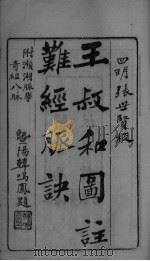 四明張世賢編
王叔和圖註
難經脉訣
附瀕湖脉學
奇經八脉
暨陽韓鳳題